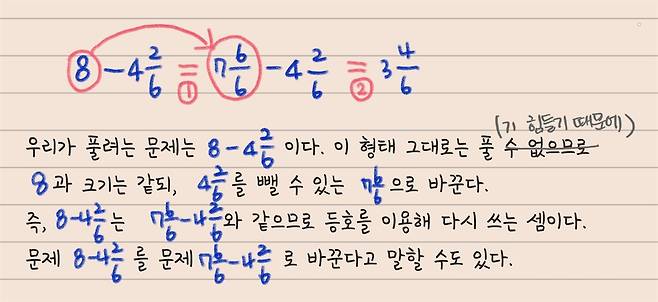 8 - 4 2/6 = 7 6/6 - 4 2/6 = 3 4/6
① ②
(기 힘들기 때문에)
우리가 풀려는 문제는 8 - 4 2/6 이다. 이 형태 그대로는 풀 수 없으므로
8과 크기는 같되, 4 2/6를 뺄 수 있는 7 6/6으로 바꾼다.
즉, 8 - 4 2/6는 7 6/6 - 4 2/6와 같으므로 등호를 이용해 다시 쓰는 셈이다.
문제 8 - 4 2/6를 문제 7 6/6 - 4 2/6로 바꾼다고 말할 수도 있다.